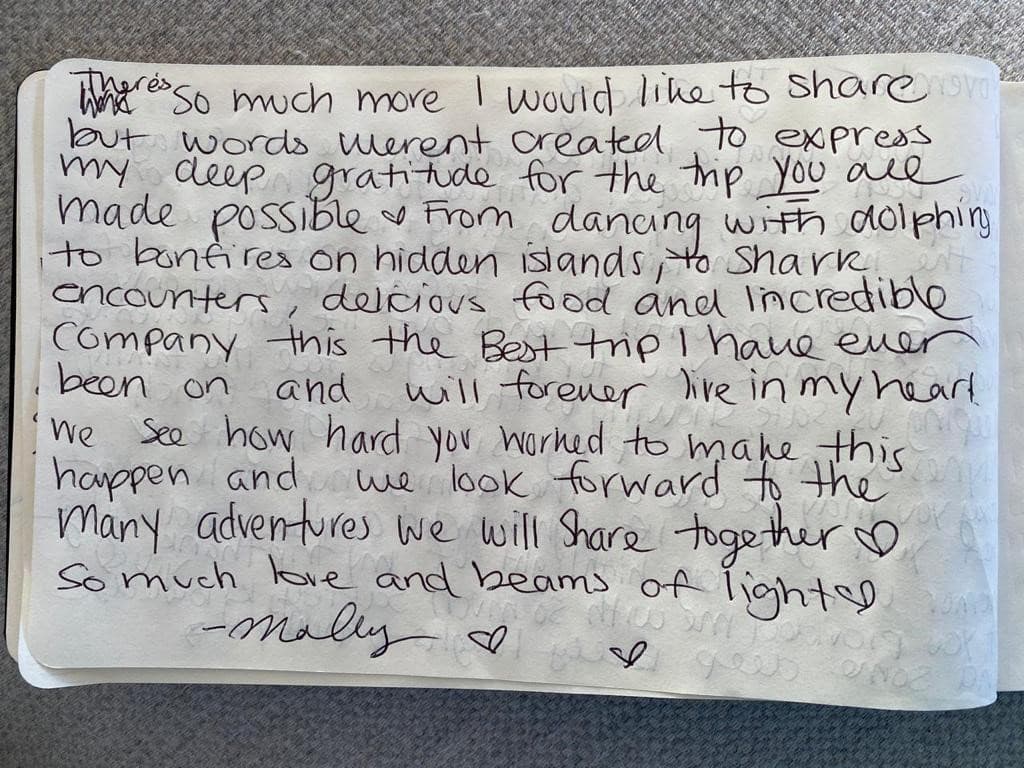 There's so much more I would like to share
but words werent created to express
my deep gratitude for the trip you all
made possible ♡ From dancing with dolphins
to bonfires on hidden islands, to shark
encounters, delicious food and incredible
Company this the Best trip I have ever
been on and will forever live in my heart.
We see how hard you worked to make this
happen and we look forward to the
many adventures we will share together ♡
So much love and beams of light ♡
- Maley ♡ ♡